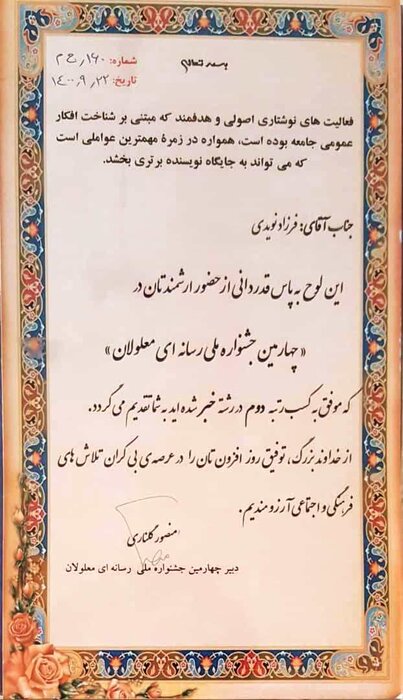 بسمه تعالی
شماره: ۱۶۰ر ع م
تاریخ: ۱٤۰۰٫۹٫۲۲
فعالیت های نوشتاری اصولی و هدفمند که مبتنی بر شناخت افکار
عمومی جامعه بوده است، همواره در زمرهٔ مهمترین عواملی است
که می تواند به جایگاه نویسنده برتری بخشد.
جناب آقای: فرزاد نویدی
این لوح به پاس قدردانی از حضور ارزشمندتان در
«چهارمین جشنواره ملی رسانه ای معلولان»
که موفق به کسب رتبه دوم در رشته خبر شده اید به شما تقدیم می گردد.
از خداوند بزرگ، توفیق روز افزون تان را در عرصه‌ی بی کران تلاش های
فرهنگی و اجتماعی آرزومندیم.
منصور گلناری
دبیر چهارمین جشنواره ملی رسانه ای معلولان